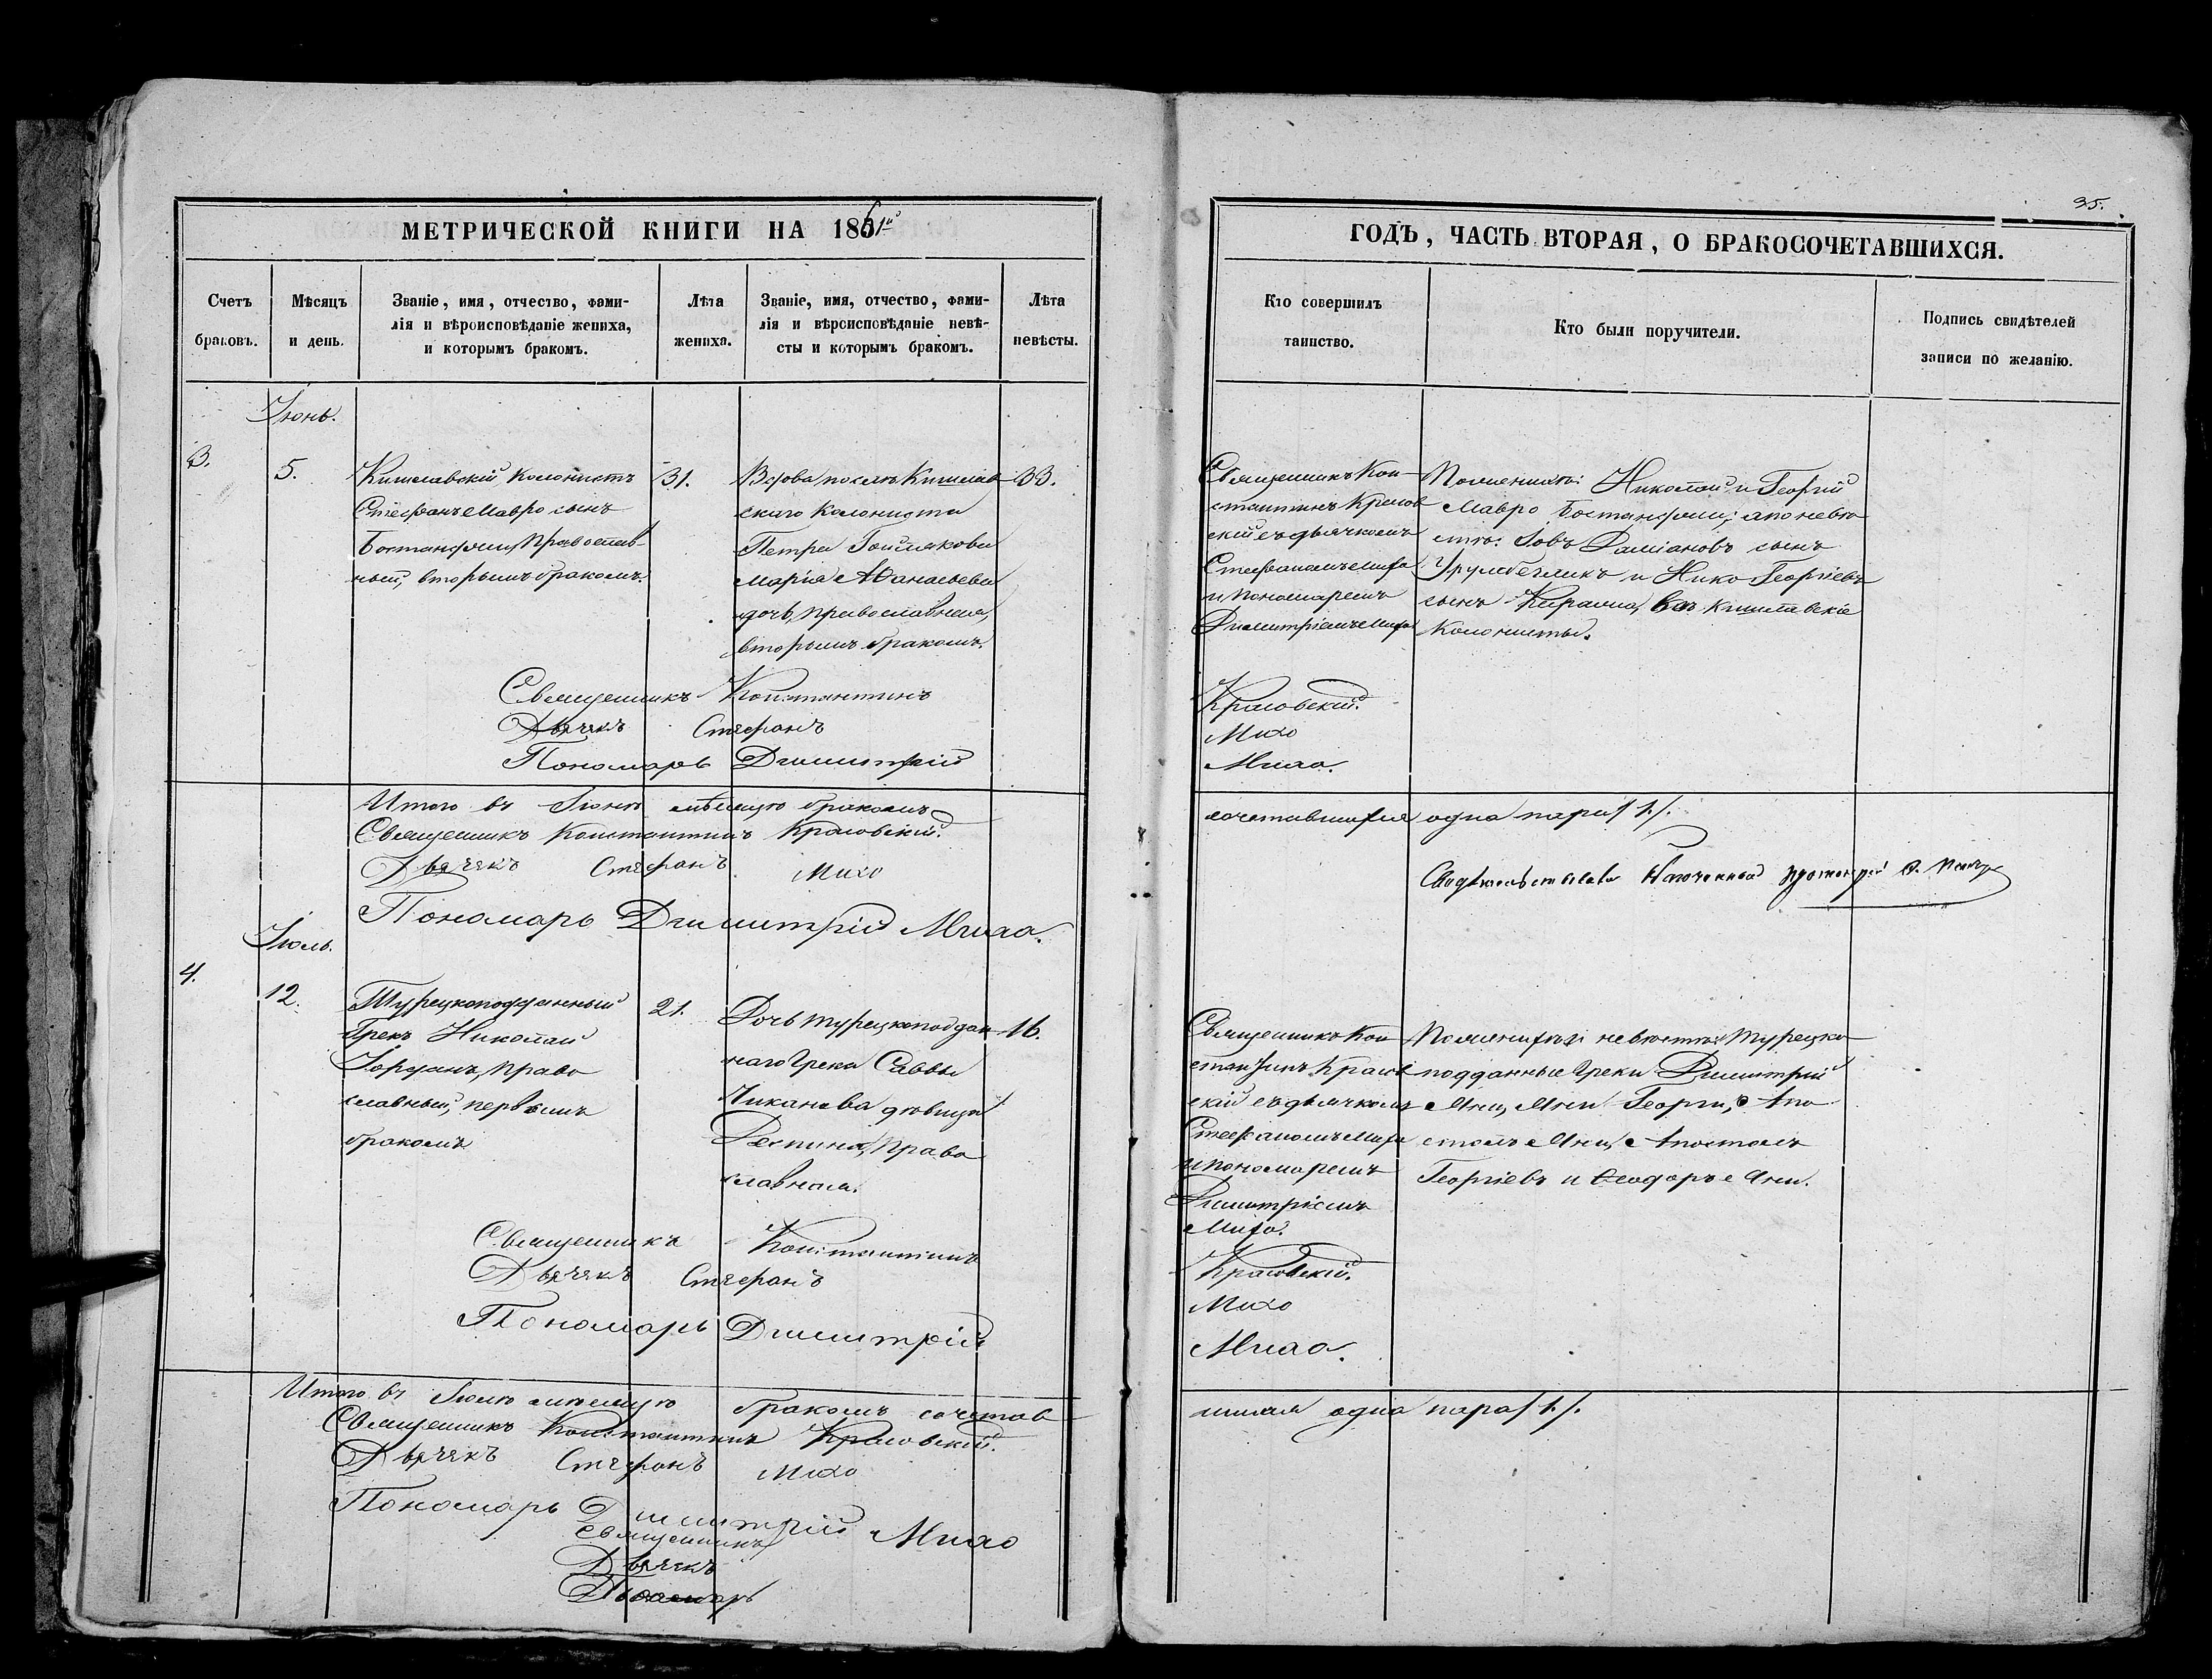 МЕТРИЧЕСКОЙ КНИГИ НА 1861й
Счетъ браковъ.
Мѣсяцъ и день.
Званіе, имя, отчество, фами-
лія и вѣроисповѣданіе жениха,
и которымъ бракомъ.
Лѣта жениха.
Званіе, имя, отчество, фами-
лія и вѣроисповѣданіе невѣ-
сты и которымъ бракомъ.
Лѣта невѣсты.
Іюнь.
3.
5.
Кишлавскій колонистъ
Стефанъ Мавро сынъ
православ-
ный, вторымъ бракомъ.
31.
Вдова послѣ Кишлав-
скаго колониста
Петра
Марія Аѳанасьева
дочь, православная,
вторымъ бракомъ.
33.
Священникъ Константинъ
Дьячекъ Стефанъ
Пономарь Димитрій
Итого въ Іюнѣ мѣсяцѣ бракомъ
Священникъ Константинъ Красовскій.
Дьячекъ Стефанъ Михо
Пономарь Димитрій Михо.
Іюль.
4.
12.
Турецкоподданный
Грекъ Николай
Іорданъ, право
славный, первымъ
бракомъ
21.
Дочь турецкоподдан-
наго Грека Саввы
дѣвица
Деспина, право
славная.
16.
Священникъ Константинъ
Дьячекъ Стефанъ
Пономарь Димитрій
Итого въ Іюлѣ мѣсяцѣ бракомъ сочетав
Священникъ Константинъ Красовскій.
Дьячекъ Стефанъ Михо
Пономарь Димитрій Михо
Священникъ
Дьячекъ
Пономарь
35.
ГОДЪ, ЧАСТЬ ВТОРАЯ, О БРАКОСОЧЕТАВШИХСЯ.
Кто совершилъ
таинство.
Кто были поручители.
Подпись свидѣтелей
записи по желанію.
Священникъ Кон-
стантинъ Красов
скій съ дьячкомъ
Стефаномъ Михо
и пономаремъ
Димитріемъ Михо
По женихѣ: Николай и Георгій
Мавро а по невѣ
стѣ: Іовъ Даміановъ сынъ
и Нико Георгіевъ
сынъ всѣ кишлавскіе
колонисты.
Красовскій.
Михо
Михо.
сочеталися одна пара /1./.
Свидѣтельствовалъ
Священникъ Кон
стантинъ Красов
скій съ дьячкомъ
Стефаномъ Михо
и пономаремъ
Димитріемъ
Михо.
По женихѣ и невѣстѣ: Турецко
подданные Греки Димитрій
Яни, Яни Георги, Апо
столъ Яни, Апостолъ
Георгіевъ и Ѳеодоръ Яни.
Красовскій.
Михо
Михо.
шихся одна пара /1./.